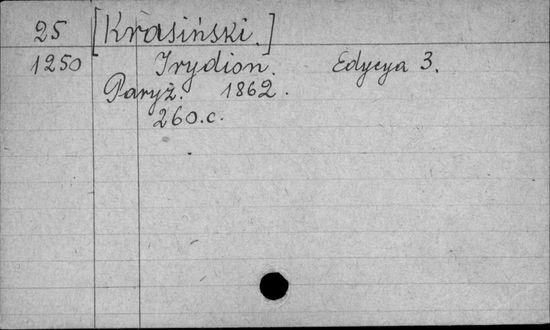 25 [Krasiński.]
1250 Irydion. Edycya 3.
Paryż. 1862.
260.c.